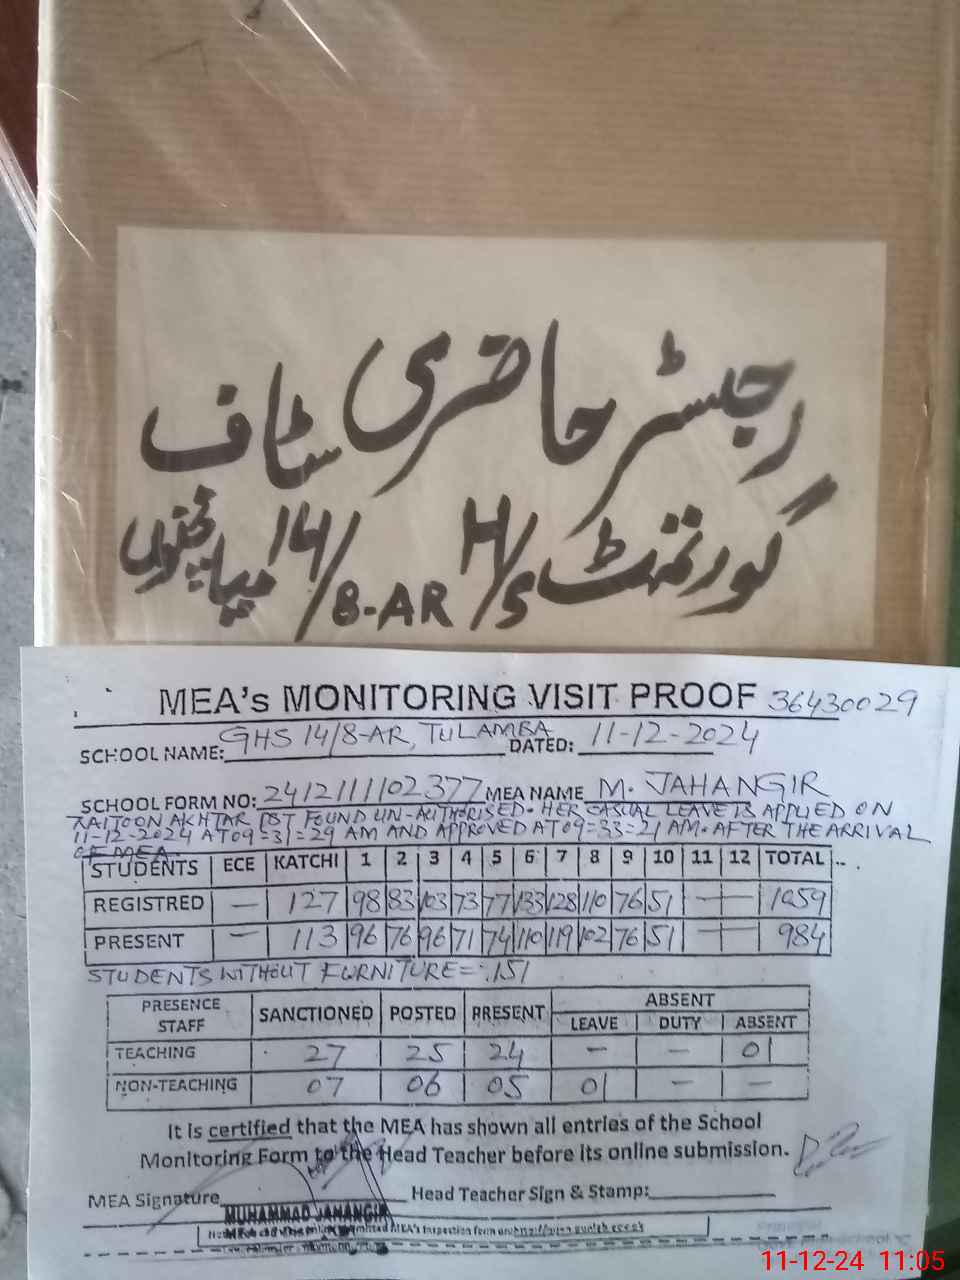 رجسٹر حاضری سٹاف
گورنمنٹ H/S 14/8-AR میاں چنوں
MEA's MONITORING VISIT PROOF 36430029
SCHOOL NAME: GHS 14/8-AR, TULAMBA DATED: 11-12-2024
SCHOOL FORM NO: 2412111102377 MEA NAME M. JAHANGIR
AKHTAR FOUND UN-AUTHORISED. HER CASUAL LEAVE IS APPLIED ON
11-12-2024 AT 09=31=29 AM AND APPROVED AT 09=33=21 AM. AFTER THE ARRIVAL
OF MEA.
STUDENTS ECE KATCHI 1 2 3 4 5 6 7 8 9 10 11 12 TOTAL
REGISTRED — 127 98 83 103 73 77 133 128 110 76 51 — — 1059
PRESENT — 113 96 76 96 71 74 110 119 102 76 51 — — 984
STUDENTS WITHOUT FURNITURE = 151
PRESENCE STAFF SANCTIONED POSTED PRESENT ABSENT
LEAVE DUTY ABSENT
TEACHING 27 25 24 — — 01
NON-TEACHING 07 06 05 01 — —
It is certified that the MEA has shown all entries of the School
Monitoring Form to the Head Teacher before its online submission.
MEA Signature Head Teacher Sign & Stamp:
MUHAMMAD JAHANGIR
11-12-24 11:05